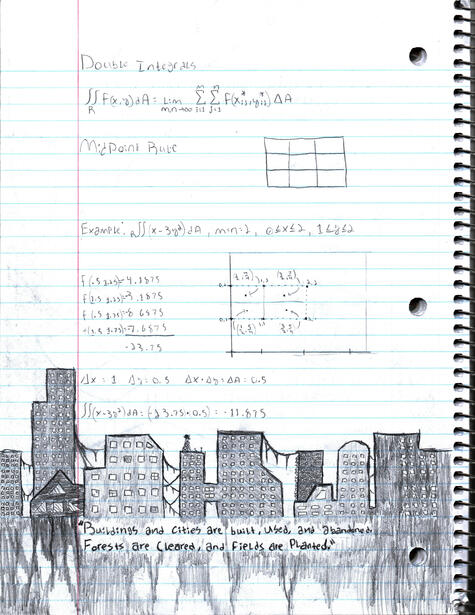 Double Integrals
∬_R f(x,y)dA = lim_{m,n→∞} Σ_{i=1}^{m} Σ_{j=1}^{n} f(x_{ij}*, y_{ij}*) ΔA
MidPoint Rule
Example: _R∬(x-3y²)dA, m=n=2, 0≤x≤2, 1≤y≤2
f(.5 1.25)=-4.1875
f(1.5 1.25)=-3.1875
f(.5 1.75)=-8.6875
+(1.5 1.75)=-7.6875
-23.75
Δx = 1 Δy = 0.5 Δx·Δy = ΔA = 0.5
∬(x-3y²)dA = (-23.75·0.5) = -11.875
"Buildings and cities are built, used, and abandoned.
Forests are cleared, and fields are planted."